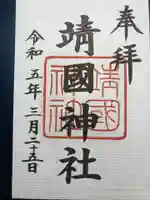 奉拝
靖國神社
靖國神社
令和五年三月二十五日